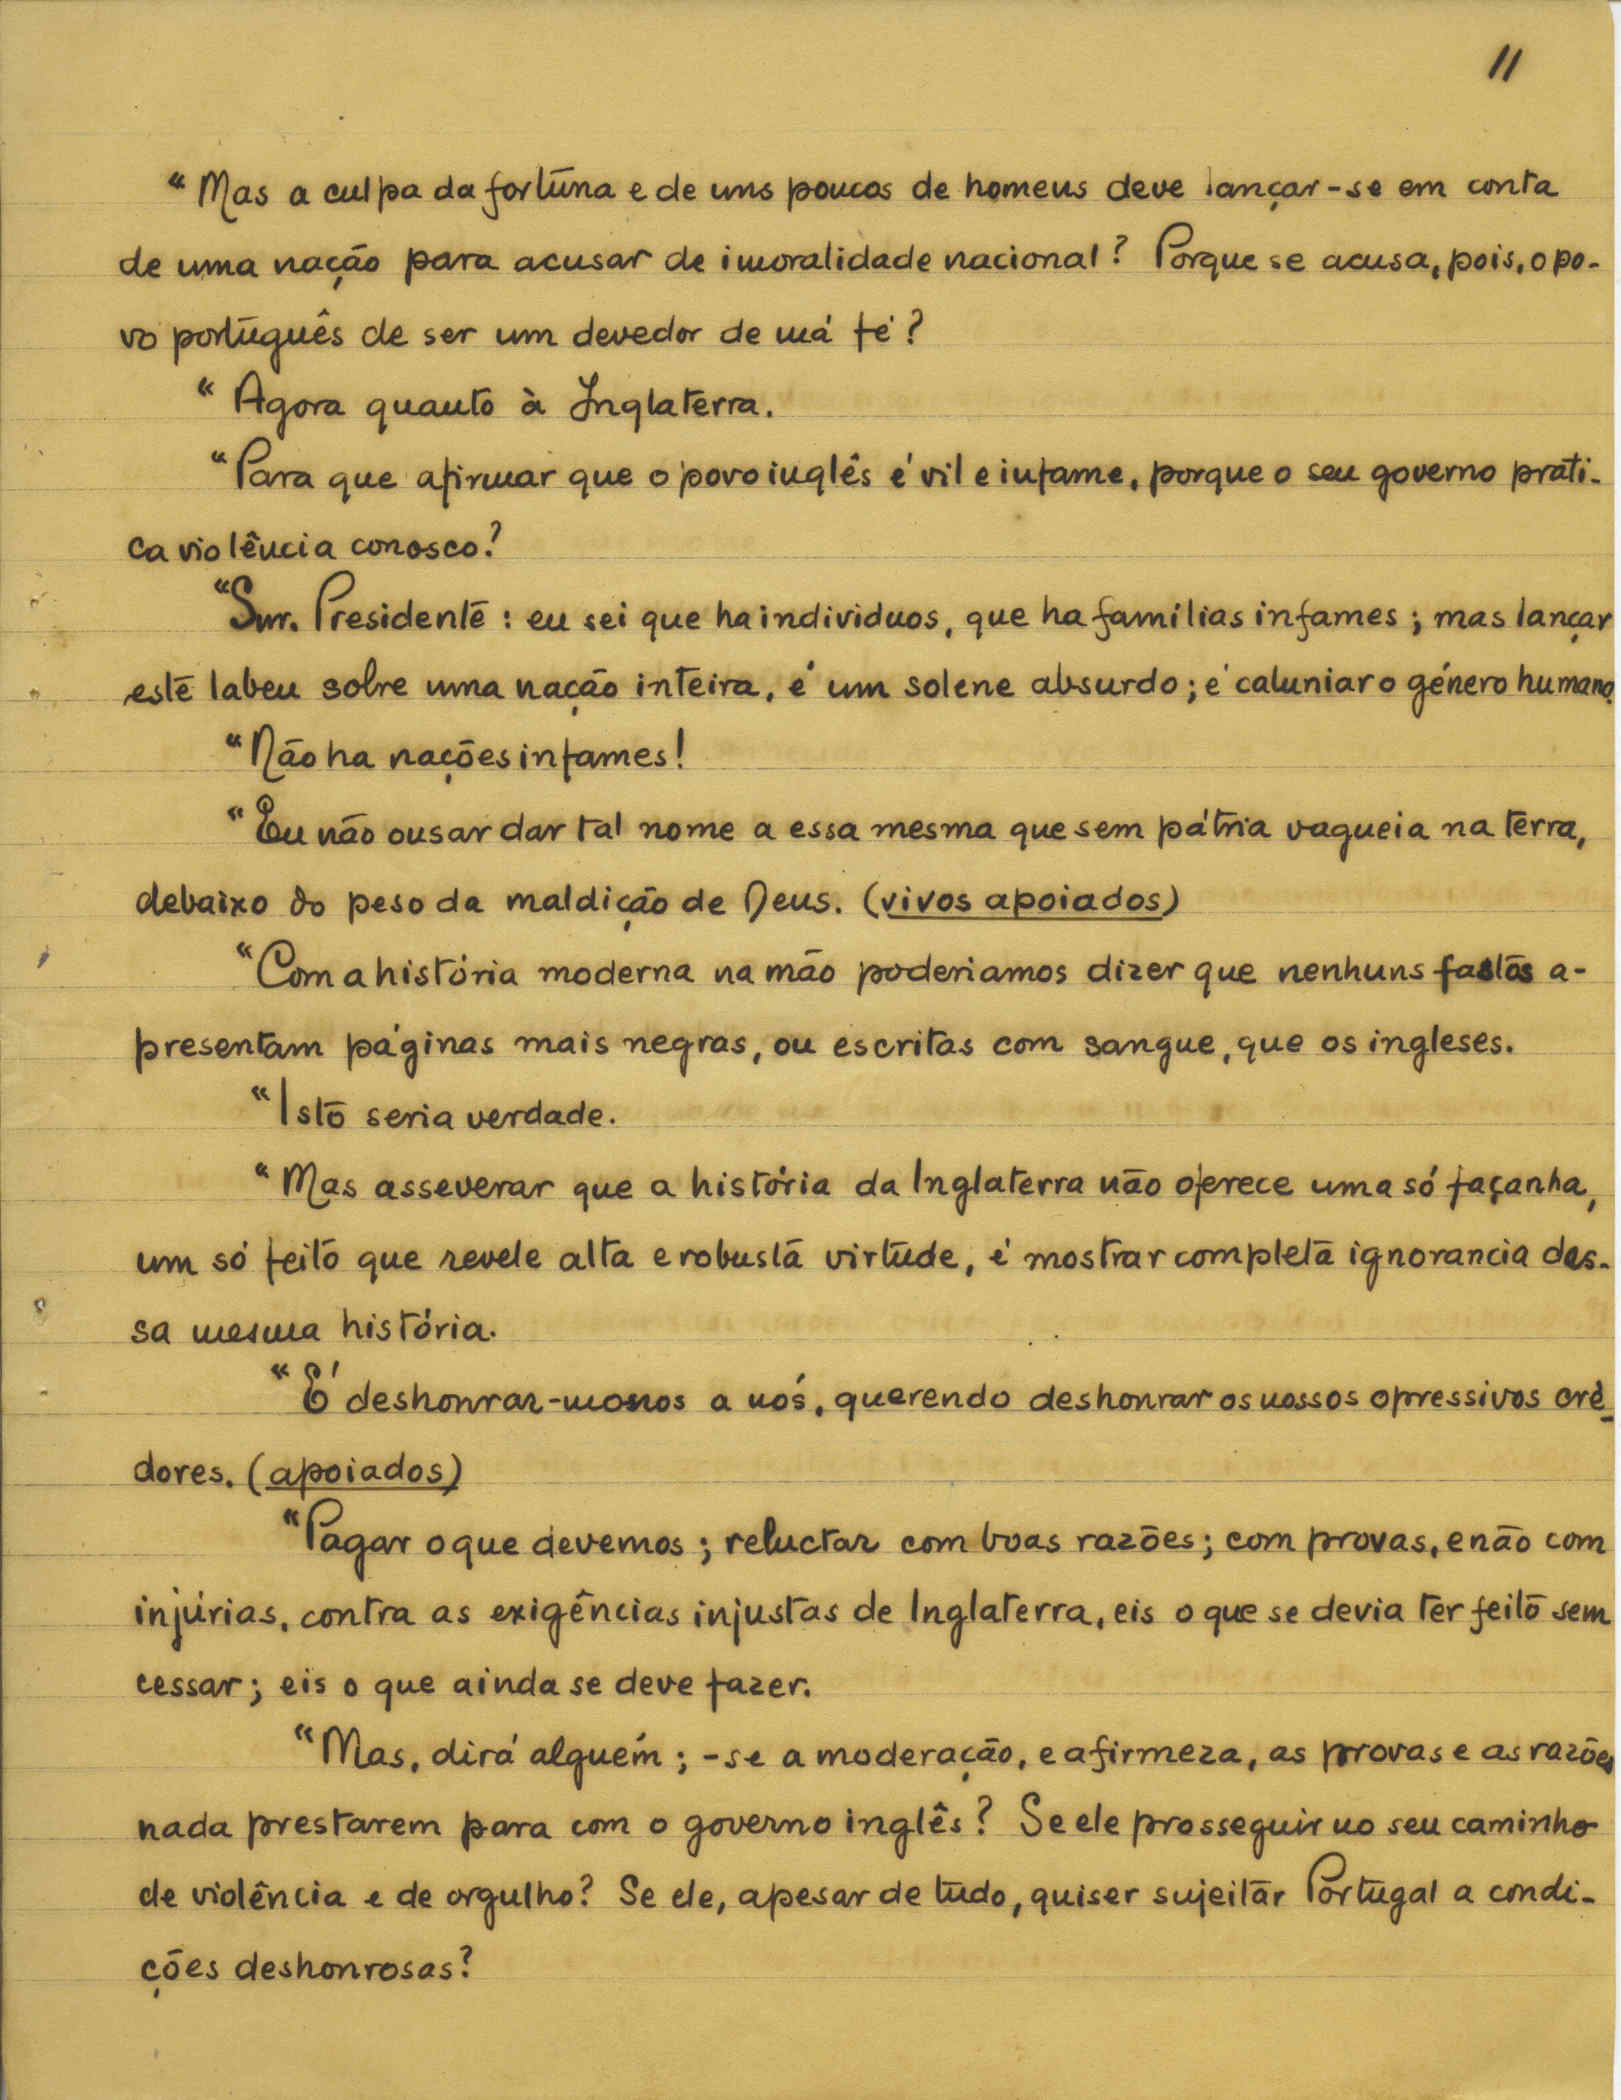 11
"Mas a culpa da fortuna e de uns poucos de homens deve lançar-se em conta
de uma nação para acusar de imoralidade nacional? Porque se acusa, pois, o po-
vo português de ser um devedor de má fé?
"Agora quanto à Inglaterra.
"Para que afirmar que o povo inglês é vil e infame, porque o seu governo prati-
ca violência conosco?
"Snr. Presidente: eu sei que ha individuos, que ha famílias infames; mas lançar
este labeu sobre uma nação inteira, é um solene absurdo; é caluniar o género humano.
"Não ha nações infames!
"Eu não ousar dar tal nome a essa mesma que sem pátria vagueia na terra,
debaixo do peso da maldição de Deus. (vivos apoiados)
"Com a história moderna na mão poderiamos dizer que nenhuns fastos a-
presentam páginas mais negras, ou escritas com sangue, que os ingleses.
"Isto seria verdade.
"Mas asseverar que a história da Inglaterra não oferece uma só façanha,
um só feito que revele alta e robusta virtude, é mostrar completa ignorancia des-
sa mesma história.
"É deshonrar-monos a nós, querendo deshonrar os nossos opressivos crè-
dores. (apoiados)
"Pagar o que devemos; reluctar com boas razões; com provas, e não com
injúrias, contra as exigências injustas de Inglaterra, eis o que se devia ter feito sem
cessar; eis o que ainda se deve fazer.
"Mas, dirá alguém; -se a moderação, e a firmeza, as provas e as razões
nada prestarem para com o governo inglês? Se ele prosseguir no seu caminho
de violência e de orgulho? Se ele, apesar de tudo, quiser sujeitar Portugal a condi-
ções deshonrosas?